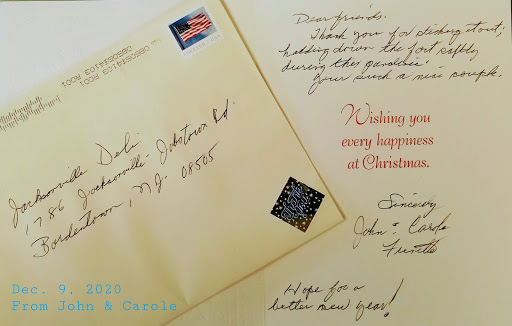 08505@4103 R001
Jacksonville Deli
1786 Jacksonville-Jobstown Rd.
Bordentown, N.J. 08505
Dec. 9, 2020
From John & Carole
Dear friends.
Thank you for sticking it out,
holding down the fort safely
during this pandemic.
Your such a nice couple.
Wishing you
every happiness
at Christmas.
Sincerly
John & Carole
Hope for a
better new year!